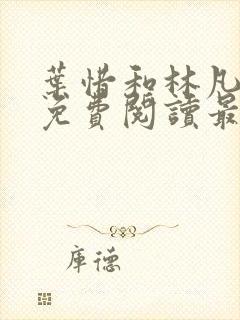 葉惜和林凡
免費閱讀最
庫德